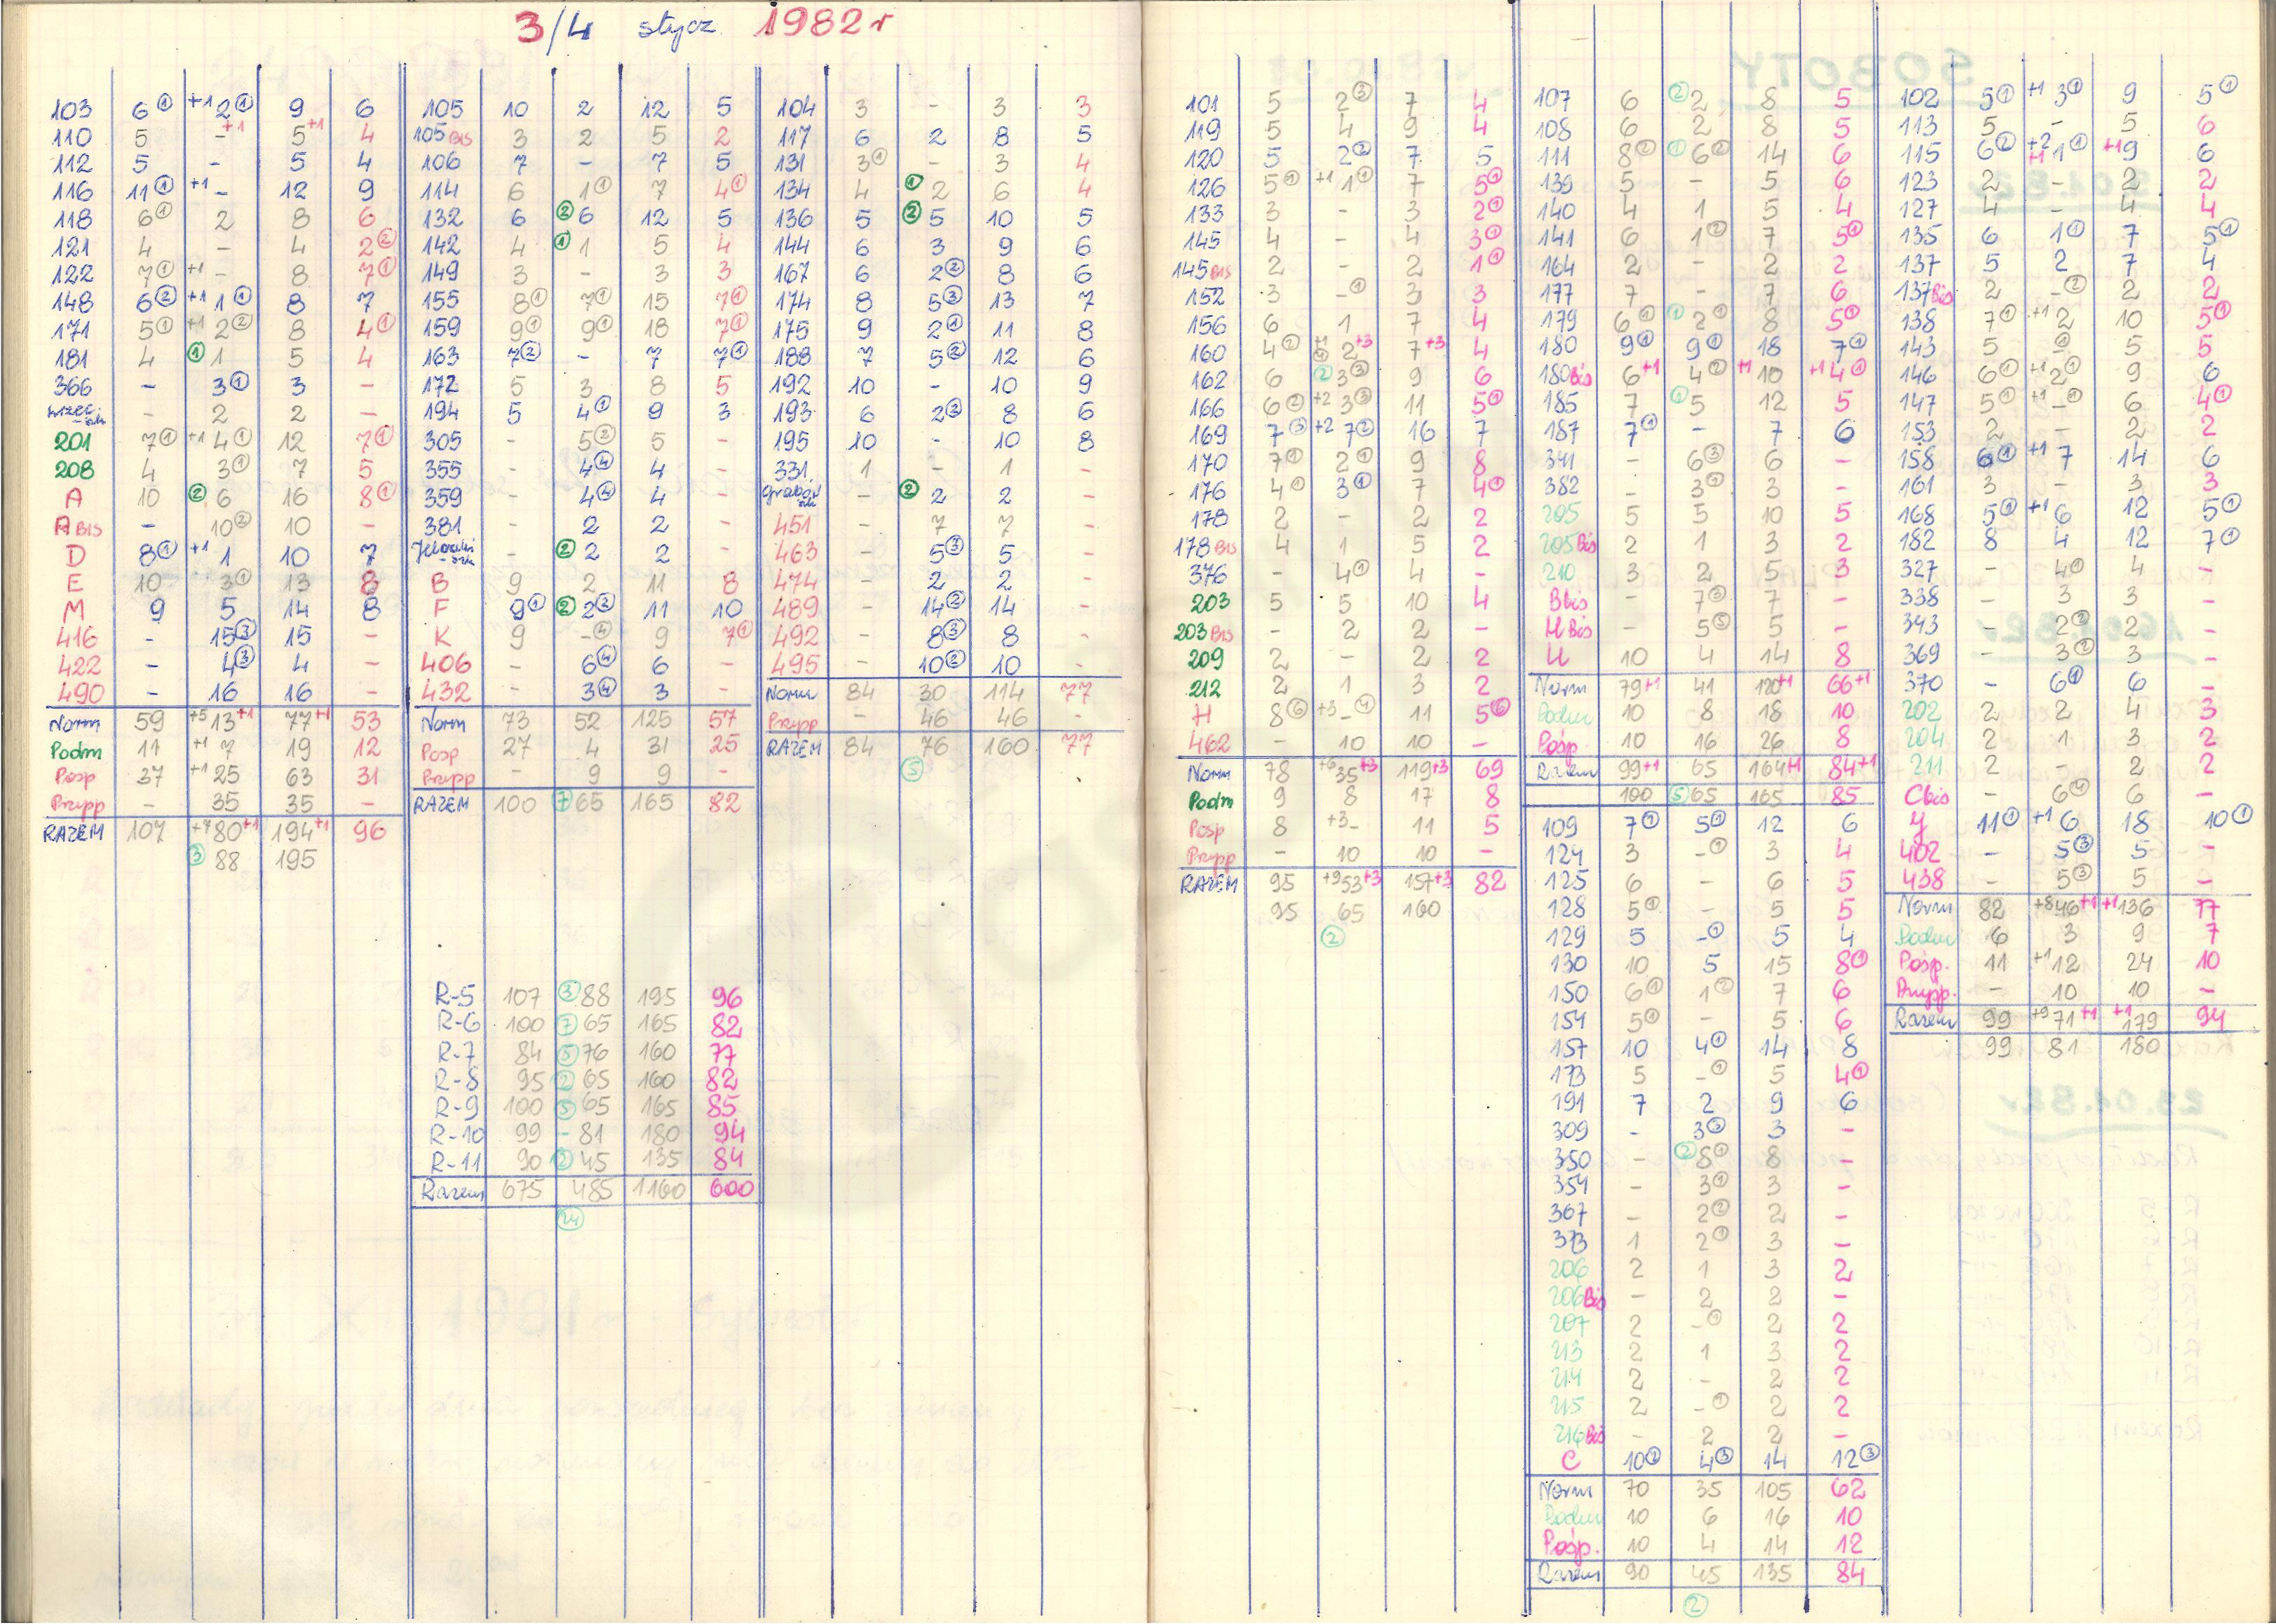 3/4 stycz. 1982 r
103 6① +1 2① 9 6
110 5 - +1 5+1 4
112 5 - 5 4
116 11① +1 - 12 9
118 6① 2 8 6
121 4 - 4 2②
122 7① +1 - 8 7①
148 6② +1 1① 8 7
171 5① +1 2② 8 4①
181 4 ① 1 5 4
366 - 3① 3 -
- 2 2 -
201 7① +1 4① 12 7①
208 4 3① 7 5
A 10 ② 6 16 8①
A BIS - 10② 10 -
D 8① +1 1 10 7
E 10 3① 13 8
M 9 5 14 8
416 - 15③ 15 -
422 - 4③ 4 -
490 - 16 16 -
Norm 59 +5 13+1 77+1 53
Podm 11 +1 7 19 12
Posp 37 +1 25 63 31
Przysp - 35 35 -
RAZEM 107 +7 80+1 194+1 96
③ 88 195
105 10 2 12 5
105 BIS 3 2 5 2
106 7 - 7 5
114 6 1① 7 4①
132 6 ② 6 12 5
142 4 ① 1 5 4
149 3 - 3 3
155 8① 7① 15 7①
159 9① 9① 18 7①
163 7② - 7 7①
172 5 3 8 5
194 5 4① 9 3
305 - 5② 5 -
355 - 4④ 4 -
359 - 4④ 4 -
381 - 2 2 -
- ② 2 2 -
B 9 2 11 8
F 9① ② 2③ 11 10
K 9 -④ 9 7①
406 - 6④ 6 -
432 - 3④ 3 -
Norm 73 52 125 57
Posp 27 4 31 25
Przysp - 9 9 -
RAZEM 100 ⑦ 65 165 82
R-5 107 ③ 88 195 96
R-6 100 ⑦ 65 165 82
R-7 84 ⑤ 76 160 77
R-8 95 ② 65 160 82
R-9 100 ⑤ 65 165 85
R-10 99 - 81 180 94
R-11 90 ② 45 135 84
Razem 675 485 1160 600
㉔
104 3 - 3 3
117 6 2 8 5
131 3① - 3 4
134 4 ① 2 6 4
136 5 ② 5 10 5
144 6 3 9 6
167 6 2② 8 6
174 8 5③ 13 7
175 9 2① 11 8
188 7 5② 12 6
192 10 - 10 9
193 6 2③ 8 6
195 10 - 10 8
331 1 - 1 -
- ② 2 2 -
451 - 7 7 -
463 - 5③ 5 -
474 - 2 2 -
489 - 14② 14 -
492 - 8③ 8 -
495 - 10② 10 -
Norm 84 30 114 77
Przysp - 46 46 -
RAZEM 84 76 160 77
⑤
101 5 2③ 7 4
119 5 4 9 4
120 5 2② 7 5
126 5① +1 1① 7 5①
133 3 - 3 2①
145 4 - 4 3①
145 BIS 2 - 2 1①
152 3 -① 3 3
156 6 1 7 4
160 4② +1 2+3 7+3 4
162 6 ② 3③ 9 6
166 6② +2 3③ 11 5①
169 7③ +2 7② 16 7
170 7① 2① 9 8
176 4① 3① 7 4①
178 2 - 2 2
178 BIS 4 1 5 2
376 - 4① 4 -
203 5 5 10 4
203 BIS - 2 2 -
209 2 - 2 2
212 2 1 3 2
H 8⑥ +3 -④ 11 5⑥
462 - 10 10 -
Norm 78 +6 35+3 119+3 69
Podm 9 8 17 8
Posp 8 +3 - 11 5
Przysp - 10 10 -
RAZEM 95 +9 53+3 157+3 82
95 65 160
②
107 6 ② 2 8 5
108 6 2 8 5
111 8② ① 6② 14 6
139 5 - 5 6
140 4 1 5 4
141 6 1② 7 5①
164 2 - 2 2
177 7 - 7 6
179 6① ① 2① 8 5①
180 9① 9① 18 7①
180 Bis 6+1 4② +1 10 +1 4①
185 7 ① 5 12 5
187 7① - 7 6
341 - 6③ 6 -
382 - 3① 3 -
205 5 5 10 5
205 Bis 2 1 3 2
210 3 2 5 3
B bis - 7③ 7 -
U Bis - 5⑤ 5 -
U 10 4 14 8
Norm 79+1 41 120+1 66+1
Podm 10 8 18 10
Pośp. 10 16 26 8
Razem 99+1 65 164+1 84+1
100 ⑤ 65 165 85
109 7① 5① 12 6
124 3 -① 3 4
125 6 - 6 5
128 5① - 5 5
129 5 -① 5 4
130 10 5 15 8①
150 6① 1② 7 6
154 5① - 5 6
157 10 4① 14 8
173 5 -① 5 4①
191 7 2 9 6
309 - 3③ 3 -
350 - ② 8① 8 -
354 - 3① 3 -
367 - 2② 2 -
373 1 2① 3 -
206 2 1 3 2
206 Bis - 2 2 -
207 2 -① 2 2
213 2 1 3 2
214 2 - 2 2
215 2 -① 2 2
216 Bis - 2 2 -
C 10② 4③ 14 12③
Norm 70 35 105 62
Podm 10 6 16 10
Pośp. 10 4 14 12
Razem 90 45 135 84
②
102 5① +1 3① 9 5①
113 5 - 5 6
115 6② +2 +1 1① +1 9 6
123 2 - 2 2
127 4 - 4 4
135 6 1① 7 5①
137 5 2 7 4
137 Bis 2 -② 2 2
138 7① +1 2 10 5①
143 5 -① 5 5
146 6① +1 2① 9 6
147 5① +1 -① 6 4①
153 2 - 2 2
158 6① +1 7 14 6
161 3 - 3 3
168 5① +1 6 12 5①
182 8 4 12 7①
327 - 4① 4 -
338 - 3 3 -
343 - 2② 2 -
369 - 3② 3 -
370 - 6① 6 -
202 2 2 4 3
204 2 1 3 2
211 2 - 2 2
C bis - 6④ 6 -
Y 11① +1 6 18 10①
402 - 5③ 5 -
438 - 5③ 5 -
Norm 82 +8 46+1 +1 136 77
Podm 6 3 9 7
Pośp. 11 +1 12 24 10
Przysp. - 10 10 -
Razem 99 +9 71+1 +1 179 94
99 81 180